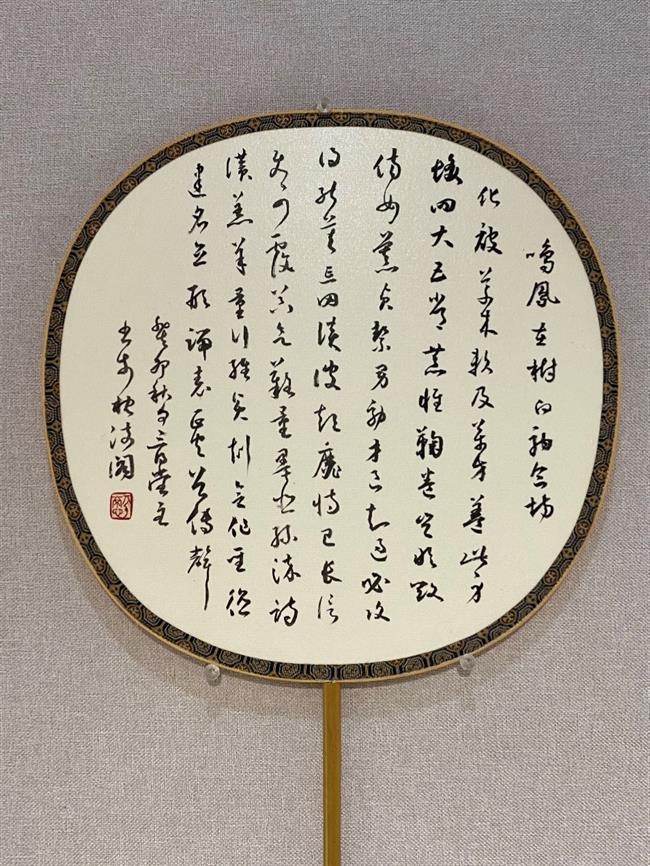 鳴鳳在樹白駒食場
化被草木賴及萬方蓋此身
髮四大五常恭惟鞠養豈敢毀
傷女慕貞絜男効才良知過必改
得能莫忘罔談彼短靡恃己長信
使可覆器欲難量墨悲絲染詩
讚羔羊景行維賢剋念作聖德
建名立形端表正空谷傳聲
癸卯秋月堂主
书於阁